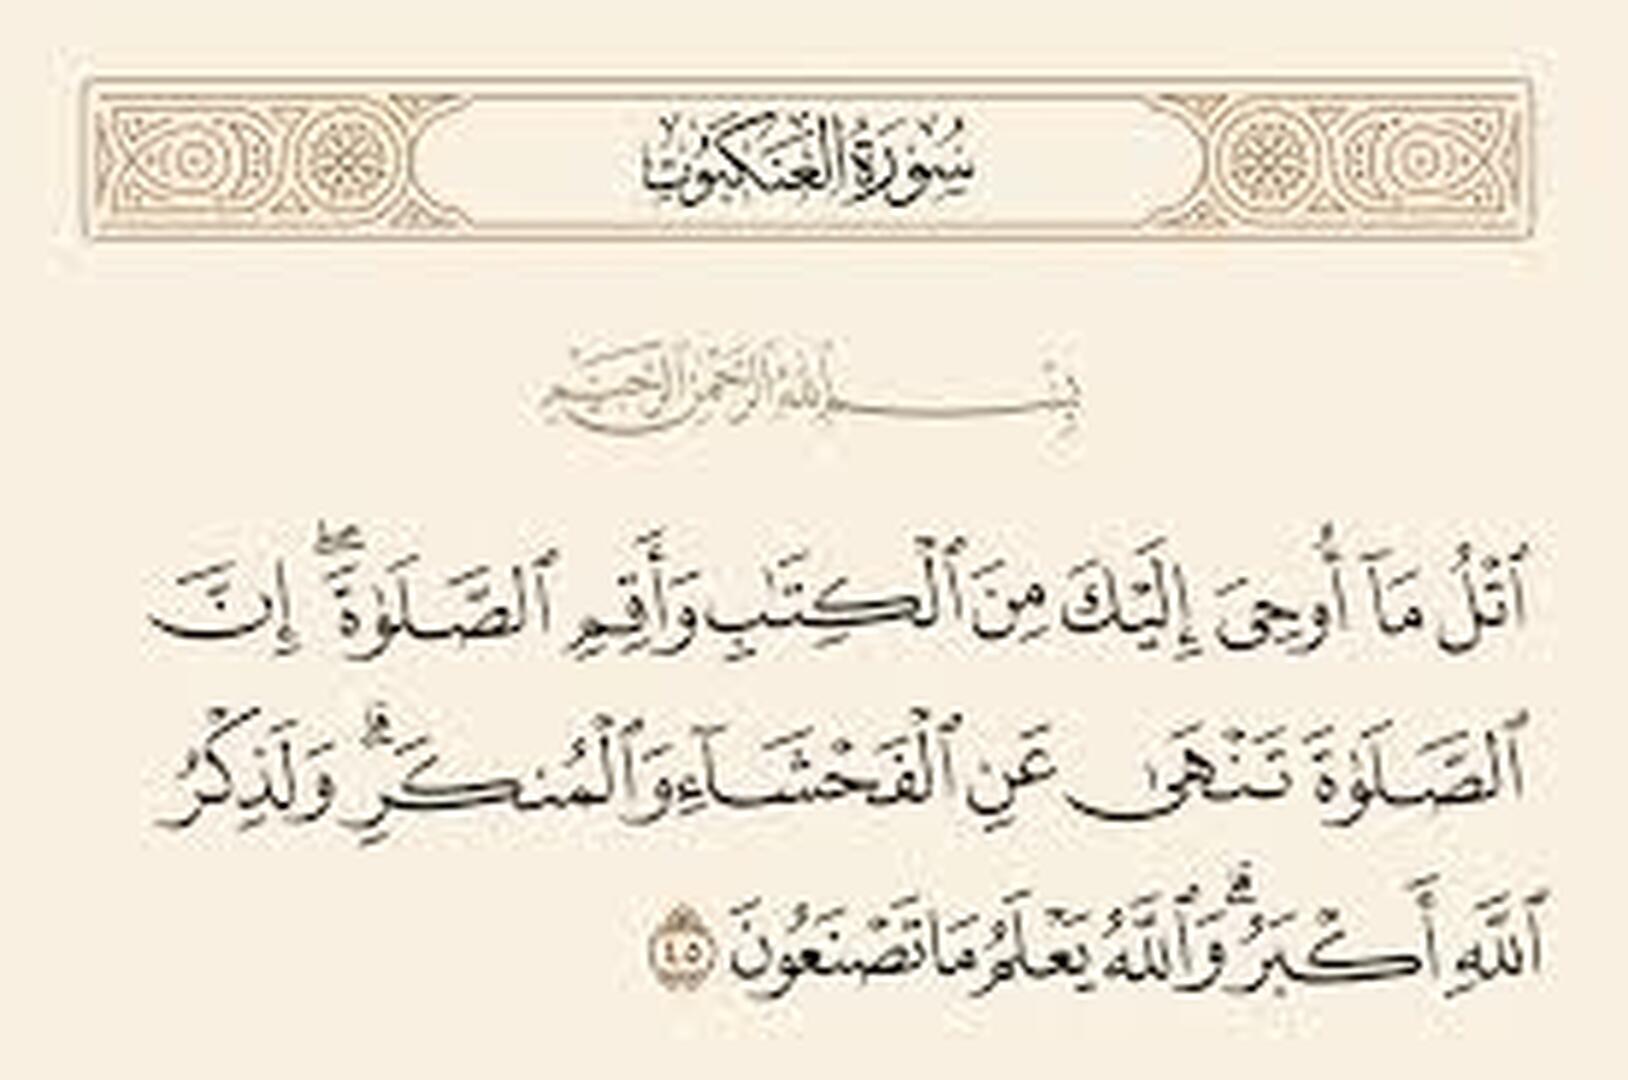 سُورَةُ الْعَنكَبُوتِ
بِسْمِ اللَّهِ الرَّحْمَٰنِ الرَّحِيمِ
ٱتْلُ مَآ أُوحِىَ إِلَيْكَ مِنَ ٱلْكِتَٰبِ وَأَقِمِ ٱلصَّلَوٰةَ ۖ إِنَّ
ٱلصَّلَوٰةَ تَنْهَىٰ عَنِ ٱلْفَحْشَآءِ وَٱلْمُنكَرِ ۗ وَلَذِكْرُ
ٱللَّهِ أَكْبَرُ ۗ وَٱللَّهُ يَعْلَمُ مَا تَصْنَعُونَ ٤٥